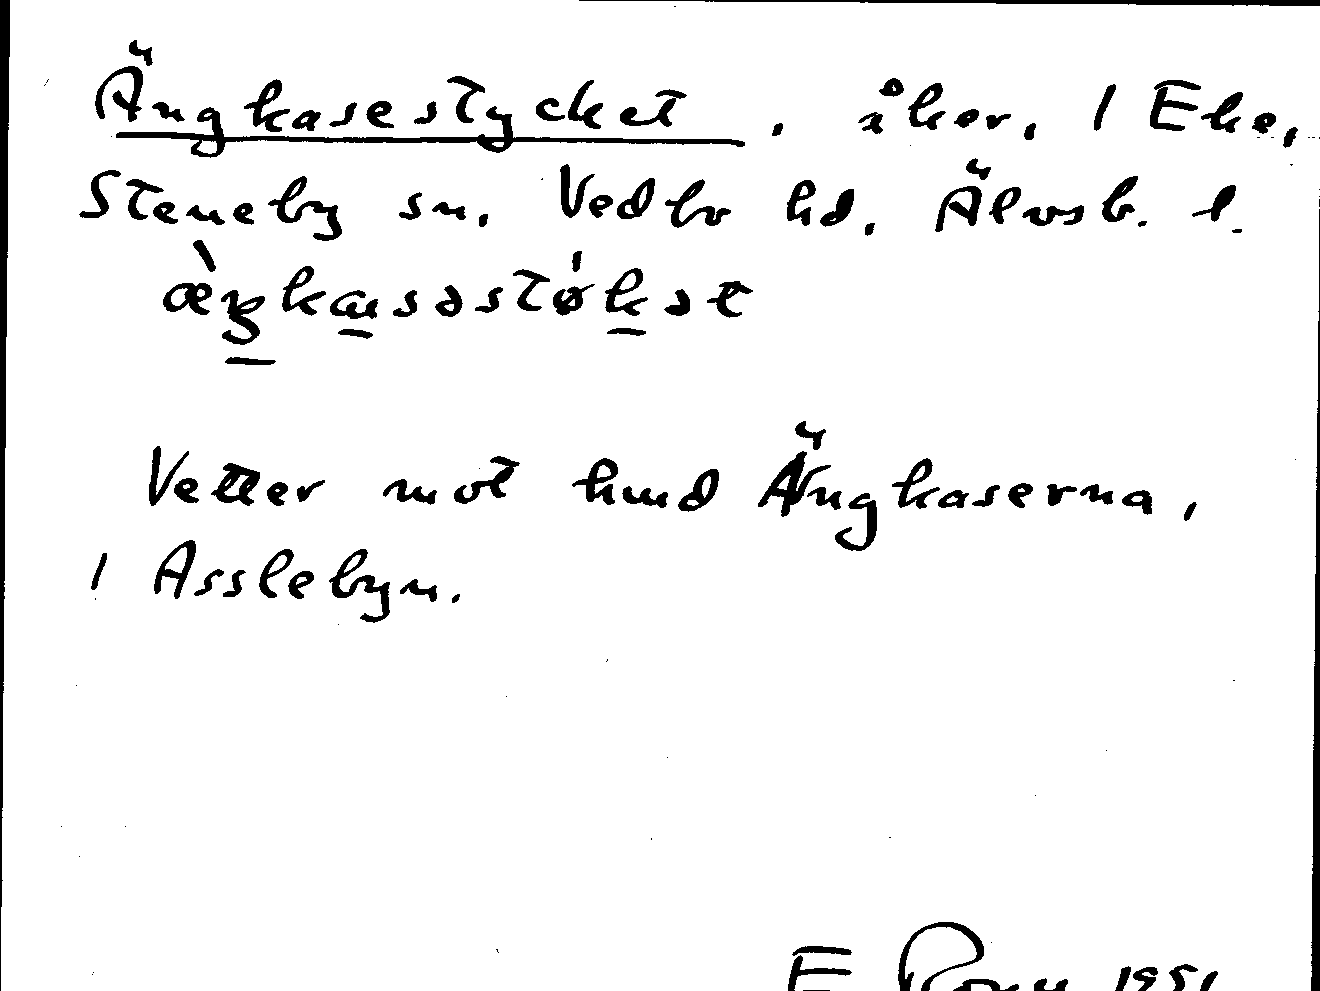 Ängkasestycket, åker, / Eke,
Steneby sn, Vedbo hd, Älvsb. l.
æ̀ŋkasəstø̍kət
Vetter mot hmd Ängkaserna,
/ Asslebyn.
E 1951